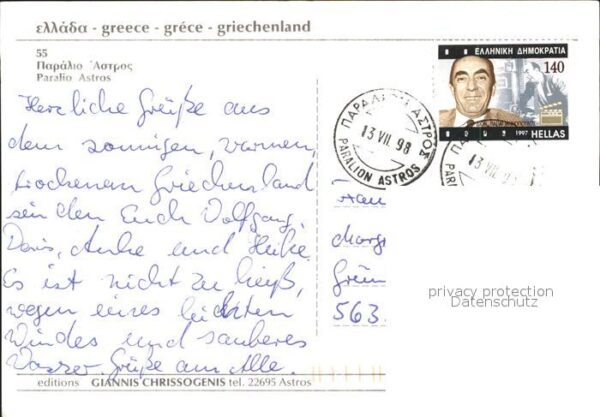 ελλάδα - greece - gréce - griechenland
55
Παράλιο Άστρος
Paralio Astros
ΕΛΛΗΝΙΚΗ ΔΗΜΟΚΡΑΤΙΑ
140
1997 HELLAS
ΠΑΡΑΛΙΟΝ ΑΣΤΡΟΣ
13 VII. 98
PARALION ASTROS
13 VII. 98
Herzliche Grüße aus
dem sonnigen, warmen,
trockenen Griechenland
senden Euch Wolfgang,
Doris, Anke und Heike.
Es ist nicht zu heiß,
wegen eines leichten
Windes und sauberes
Wasser. Grüße an Alle.
Fam
Marg
Grün
563
privacy protection
Datenschutz
editions GIANNIS CHRISSOGENIS tel. 22695 Astros